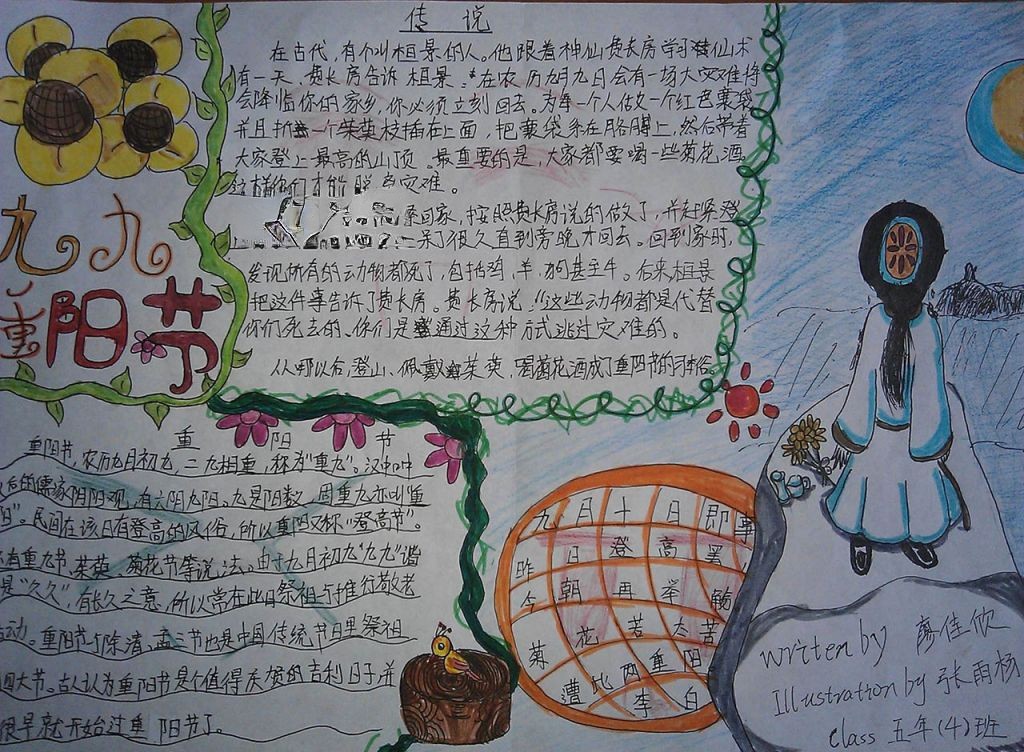 传 说
在古代,有个叫桓景的人。他跟着神仙费长房学习仙术
有一天,费长房告诉桓景:在农历九月九日会有一场大灾难将
会降临你的家乡,你必须立刻回去。为每一个人做一个红色囊袋
并且折一个茱萸枝插在上面,把囊袋系在胳膊上,然后带着
大家登上最高的山顶。最重要的是,大家都要喝一些菊花酒
这样你们才能 灾难。
回家,按照费长房说的做了,并赶紧登
呆了很久直到傍晚才回去。回到家时,
发现所有的动物都死了,包括鸡、羊、狗甚至牛。后来桓景
把这件事告诉了费长房。费长房说:“这些动物都是代替
你们死去的、你们是通过这种方式逃过灾难的。
从那以后,登山、佩戴茱萸,喝菊花酒成了重阳节的习俗。
九 九
重 阳 节
重 阳 节
重阳节,农历九月初九,二九相重,称为“重九”。汉中叶
以后的儒家阴阳观,有六阴九阳。九是阳数,固重九亦叫“重
阳”。民间在该日有登高的风俗,所以重阳又称“登高节”。
还有重九节、茱萸、菊花节等说法。由于九月初九“九九”谐
是“久久”,有长久之意,所以常在此日祭祖与推行敬老
活动。重阳节与除、清、盂三节也是中国传统节日里祭祖
四大节。古人认为重阳节是个值得庆贺的吉利日子,并
很早就开始过重阳节了。
九月十日即事
昨日登高罢
今朝再举觞
菊花苦太苦
遭此两重阳
李白
written by 廖佳欣
Illustration by 张雨杨
class 五年(4)班